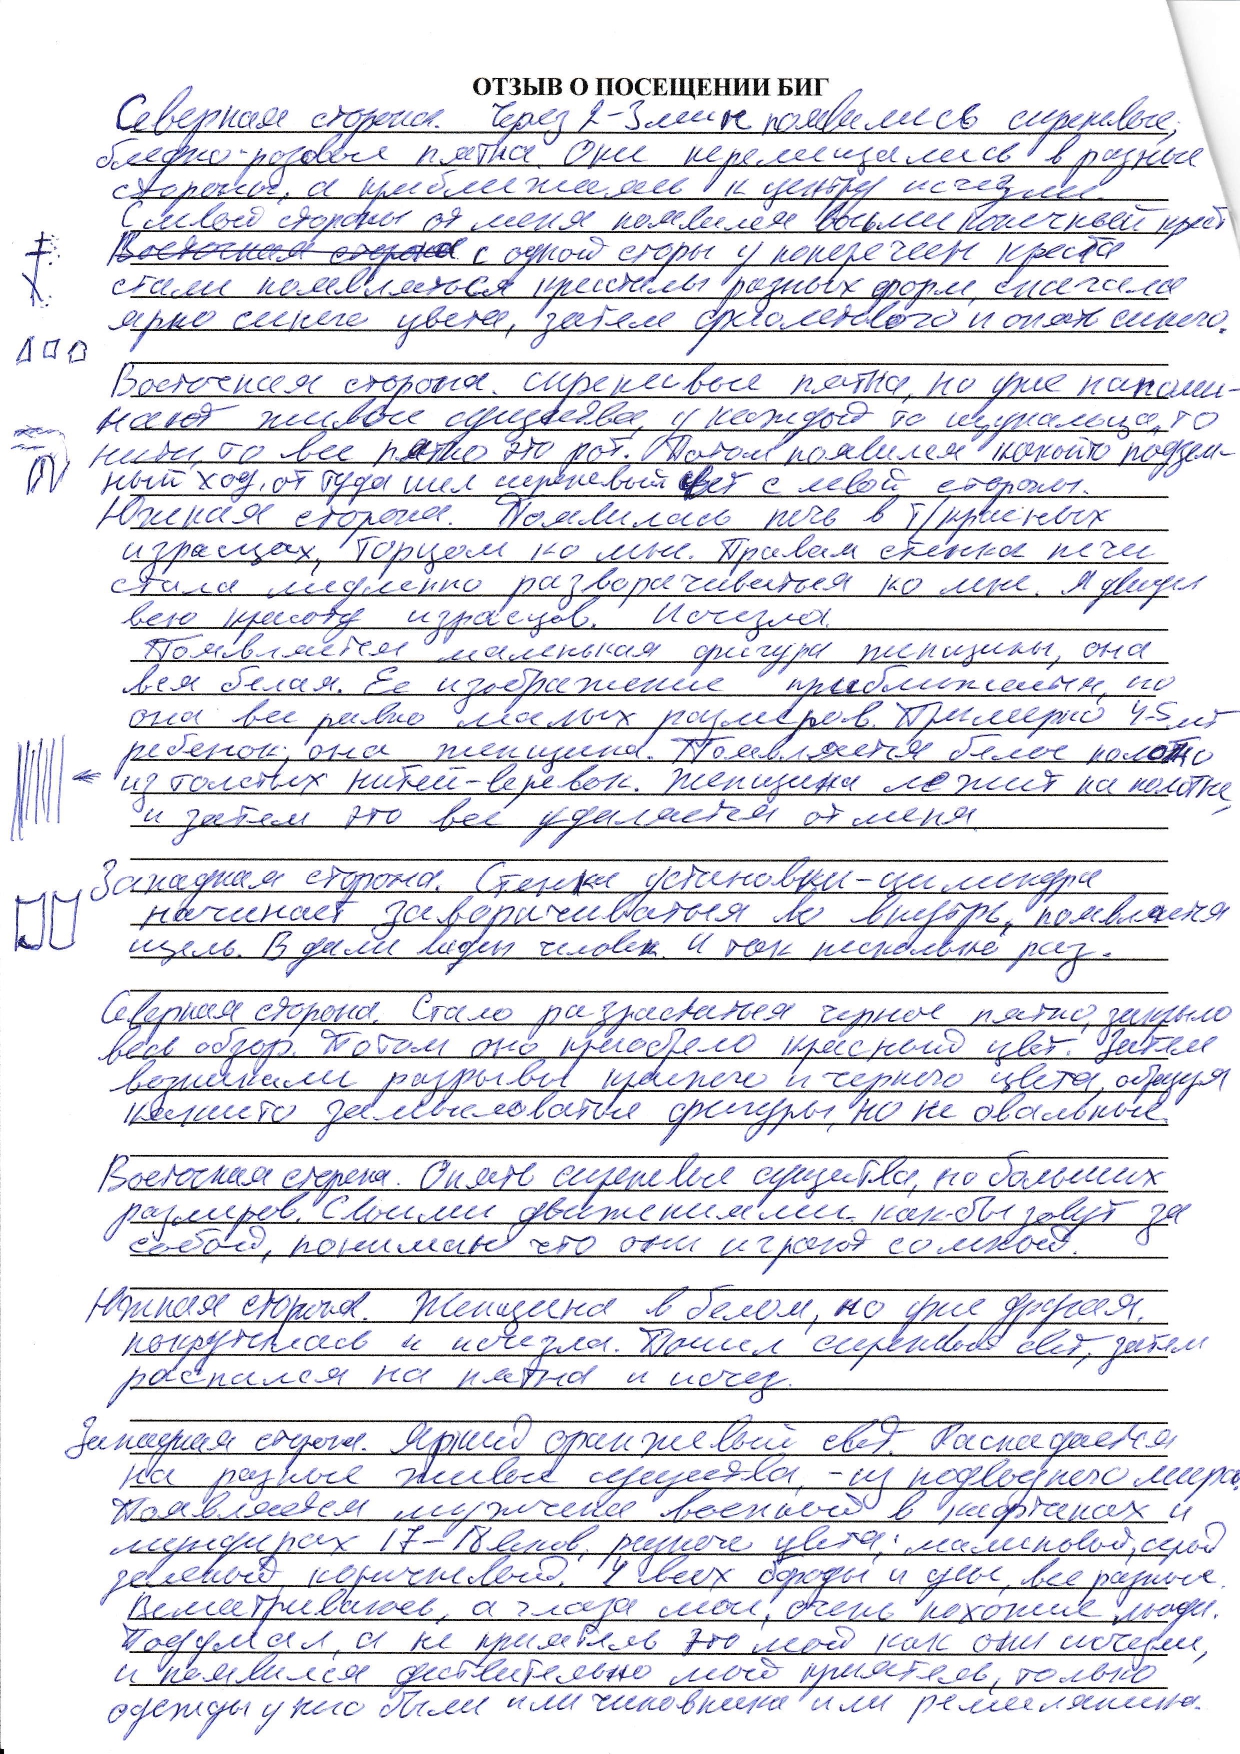 ОТЗЫВ О ПОСЕЩЕНИИ БИГ
Северная сторона. Через 2-3 мин появились сиреневые,
бледно-розовые пятна. Они перемещались в разные
стороны, а приближаясь к центру исчезли.
С левой стороны от меня появился восьми конечный крест
Восточная сторона с одной стороны у поперечен креста
стали появляться кристалы разных форм, сначала
ярко синего цвета, затем фиолетового и опять синего.
Восточная сторона. сиреневые пятна, но уже напоми-
нают живые существа, у каждый то щупальца, то
нити, то все пятно это рот. Потом появился какойто подзем-
ный ход, от туда шел сиреневый свет с левой стороны.
Южная сторона. Появилась печь в т/красных
изразцах, торцом ко мне. Правая стенка печи
стала медленно разворачиваться ко мне. Я увидел
всю красоту изразцов. Исчезла.
Появляется маленькая фигура женщины, она
вся белая. Ее изображение приближается, но
она все равно малых размеров. Примерно 4-5 лет
ребенок, она женщина. Появляется белое полотно
из толстых нитей-веревок. Женщина лежит на полотне,
и затем это все удаляется от меня
Западная сторона. Стенки установки-цилиндра
начинает заворачиваться во внутрь, появляется
щель. В дали виден человек. И так несколько раз.
Северная сторона. Стало разрастаться черное пятно, закрыло
весь обзор. Потом оно приобрело красный цвет. Затем
возникали разрывы красного и черного цвета, образуя
какието замысловатые фигуры, но не овальные.
Восточная сторона. Опять сиреневые существа, но больших
размеров. Своими движениями как-бы зовут за
собой, понимаю что они играют со мной.
Южная сторона. Женщина в белом, но уже другая.
покрутилась и исчезла. Пошел сиреневый свет, затем
распался на пятна и исчез.
Западная сторона. Яркий оранжевый свет. Распадается
на разные живые существа, - из подводного мира.
Появляется мужчина военный в кафтанах и
мундирах 17-18 веков, разного цвета: малиновый, серый
зеленый, коричневый. У всех бороды и усы, все разные.
Всматриваюсь, а глаза мои, очень похожие люди.
Подумал, а не приятель это мой как они исчезли,
и появился действительно мой приятель, только
одежды у него были или чиновника или ремеслянина.